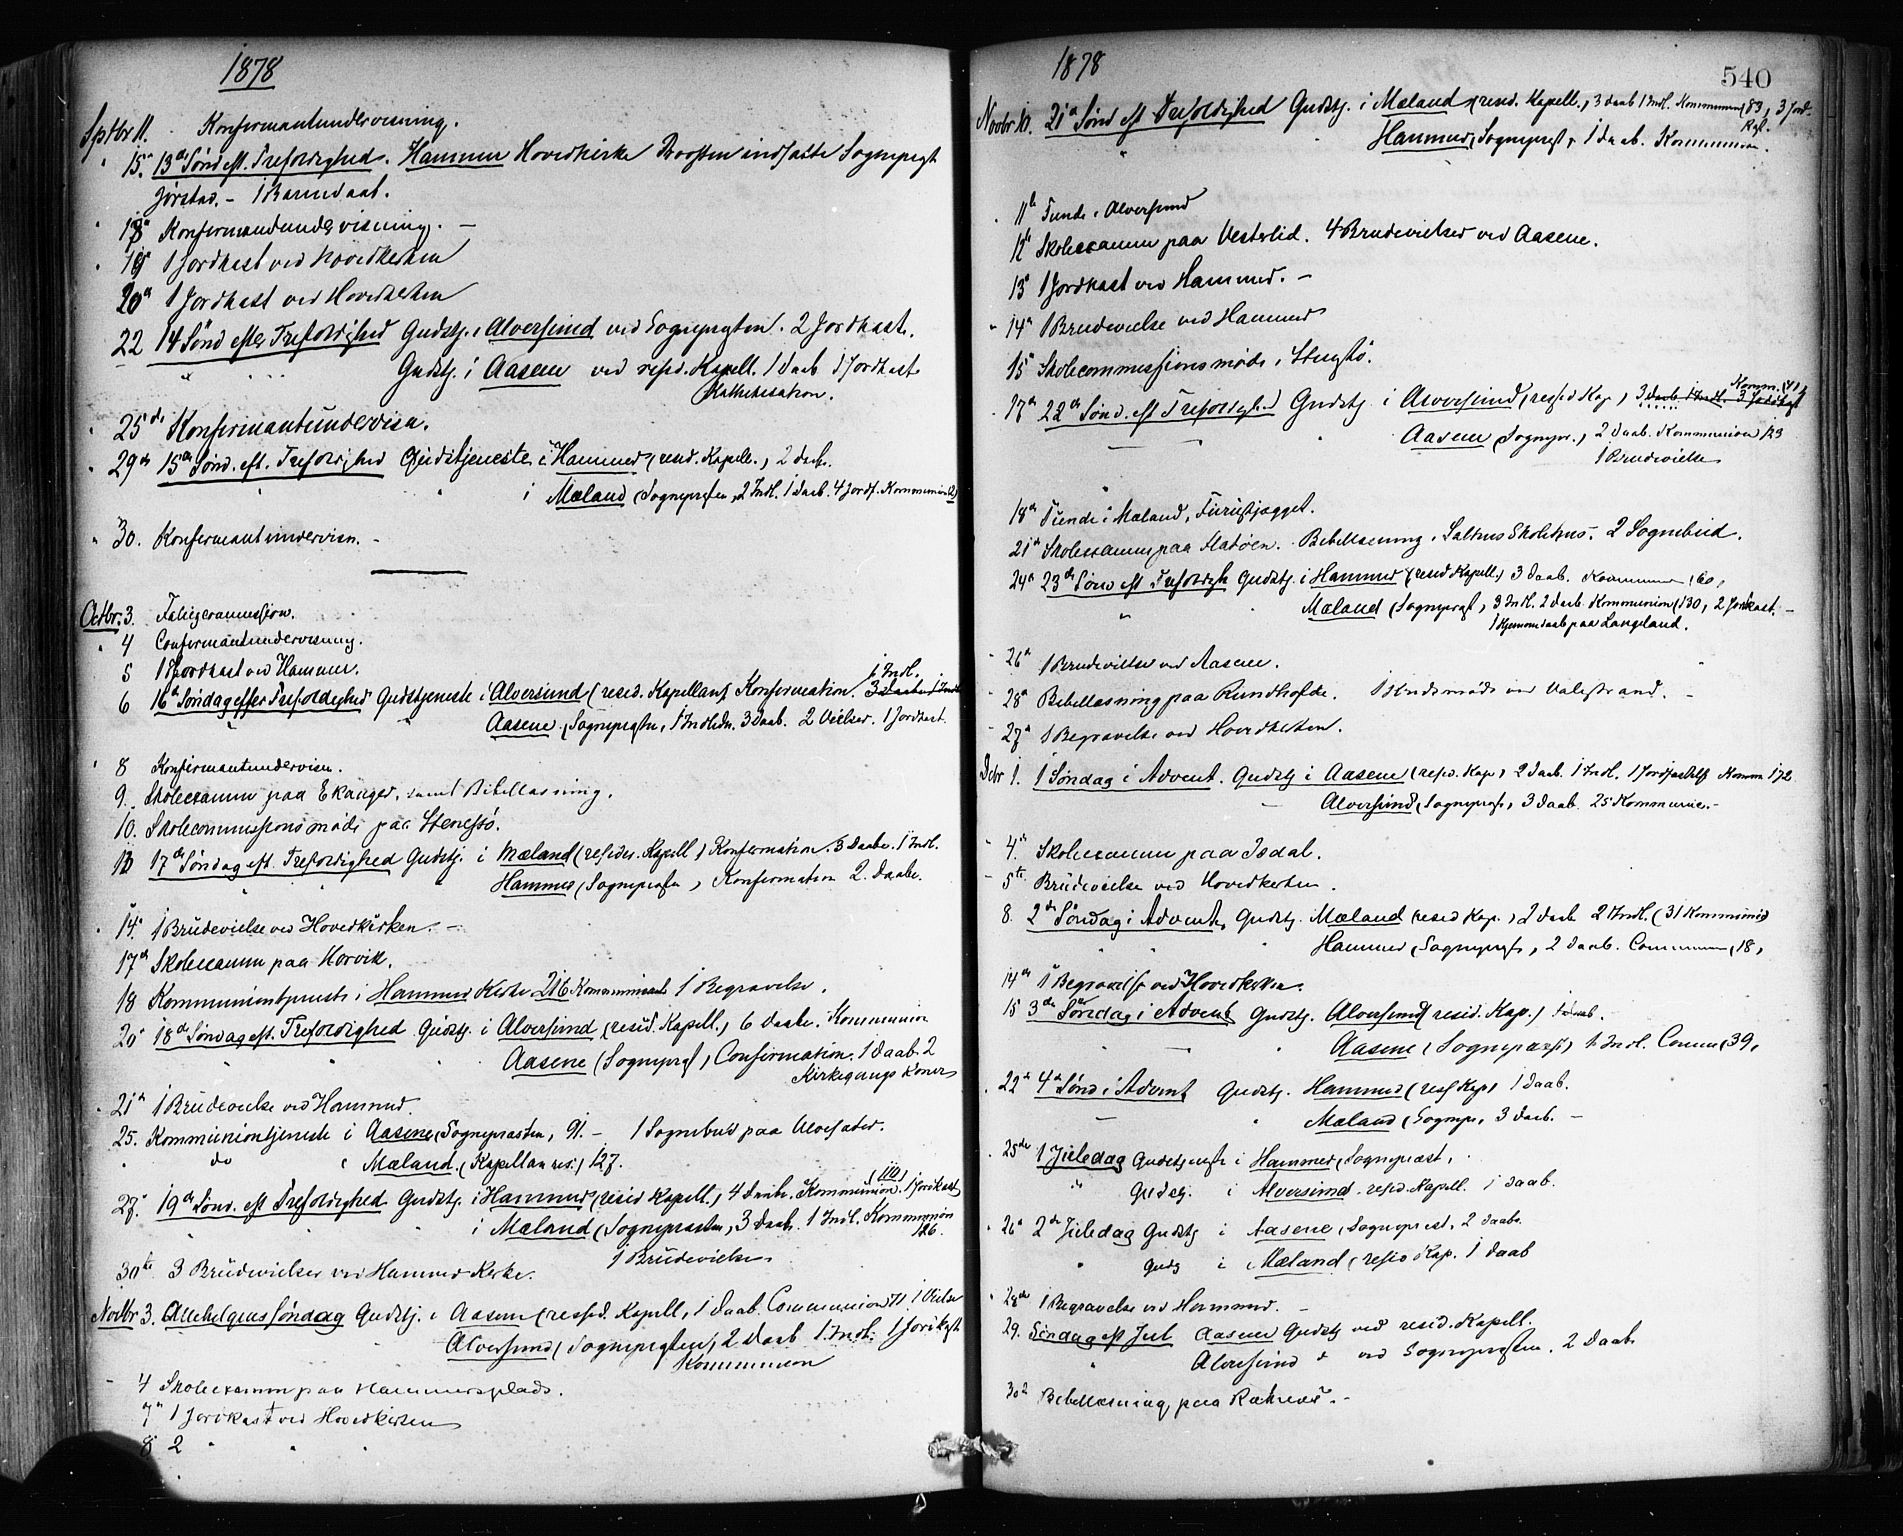 1878
Sptbr 11. Konfirmantundervisning.
" 15. 13de Sønd eft. Trefoldighed. Hammer Hovedkirke Provsten indsatte Sogneprest
Jørstad. - 1 Barnedaab.
" 18 Konfirmandundervisning. -
" 19 1 Jordkast ved Hovedkirken
20 1 Jordkast ved Hovedkirken
22 14 Sønd efter Trefoldighed Gudstj. i Alversund ved Sognepresten. 2 Jordkast.
" Gudstj. i Aasene ved resid. Kapell. 1 Daab 1 Jordkast
Kathekisation.
" 25de Konfirmantundervisn.
" 29de 15de Sønd. eft. Trefoldighed Gudstjeneste i Hammer (resid. Kapell.) 2 Daab.
" i Mæland (Sognepresten, 2 Indl. 1 Daab. 4 Jordf. Kommunion
" 30. Konfirmantundervisn. -
Octbr. 3.
" 4 Confirmantundervisning.
5 1 Jordkast ved Hammer.
1 Indl.
6 16de Søndag efter Trefoldighed Gudstjeneste i Alversund (resid. Kapellan) Konfirmation. 3 Daabe 1 Indl.
" Aasene (Sognepresten, 1 Indledn. 3 Daab. 2 Vielser. 1 Jordkast.
" 8 Konfirmantundervisn.
9. Skoleexamen paa Ekanger, samt Bibellæsning.
10. Skolecommissionsmøde paa Stenestø.
13 17de Søndag eft. Trefoldighed Gudstj. i Mæland (resider. Kapell) Konfirmation. 3 Daabe. 1 Indl.
Hammer (Sognepresten) Konfirmation 2. Daabe.
" 14. 1 Brudevielse ved Hovedkirken. -
17de Skoleexamen paa Horvik.
18 Kommuniontjeneste i Hammer Kirke 216 Kommunicant 1 Begravelse.
20 18de Søndag eft. Trefoldighed Gudstj. i Alversund (resid. Kapell.) 6 Daabe. Kommunion
" Aasene (Sogneprest) Confirmation. 1 Daab. 2
Kirkegangs Koner
" 21de 1 Brudevielse ved Hammer.
25. Kommuniontjeneste i Aasene (Sognepresten, 91. - 1 Sognebud paa
" do i Mæland. (Kapellan res.) 127.
(110)
27. 19de Sønd. eft Trefoldighed Gudstj. i Hammer (resid Kapell.) 4 Daabe. Kommunion. 1 Jordkast
" i Mæland (Sognepresten, 3 Daab. 1 Indl. Kommunion
126.
1 Brudevielse
30te 3 Brudevielser ved Hammer Kirke.
Novbr 3. Allehelgens Søndag Gudstj. i Aasene (resid. Kapell, 1 Daab. Communion 71. 1 Vielse
Alversund (Sognepresten, 2 Daab 1. Indl. 1 Jordkast
Kommunion
" 4 Skoleexamen paa Hammersplads.
7 1 Jordkast ved Hovedkirken
8 2 " " "
1878
540
Novbr 10. 21de Sønd eft Trefoldighed Gudstj. i Mæland (resid. Kapell.) 3 Daab 1 Indl. Kommunion (83, 3 Jord-
kast.
" Hammer (Sogneprest, 1 Daab. Kommunion.
" 11te Tiende i Alversund
12 Skoleexamen paa Vesterlid. 4 Brudevielser ved Aasene.
13 1 Jordkast ved Hammer. -
" 14de 1 Brudevielse ved Hammer
15 Skolecommissionsmøde i Stenestø.
Komm. (41)
" 17de 22de Sønd. eft Trefoldighed Gudstj. i Alversund (resid Kap) 3 Daab. 1 Indl. 3 Jordkast
Aasene (Sognepr.) 2 Daab. Kommunion 123
1 Brudevielse
18de Tiende i Mæland,
21de Skoleexamen paa Flatøen. Bibellæsning i Skolehus. 2 Sognebud.
24de 23de Sønd eft Trefoldigh Gudstj. i Hammer (resid Kapell) 3 Daab. Kommunion (60,
" Mæland (Sogneprest, 3 Indl. 2 Daab Kommunion (130, 2 Jordkast. -
1 Hjemmedaab paa Langeland.
" 26de 1 Brudevielse ved Aasene.
" 28de Bibellæsning paa Rundhofde. 1 ved Valestrand. -
" 27de 1 Begravelse ved Hovedkirken.
Dcbr 1. 1 Søndag i Advent. Gudstj i Aasene (resid. Kap.) 2 Daab. 1 Indl. 1 Jordfæstelse Komm 172
Alversund (Sogneprest, 3 Daab. 25 Kommunion. -
" 4de Skoleexamen paa Isdal.
" 5te Brudevielse ved Hovedkirken.
8. 2de Søndag i Advent, Gudstj. Mæland (resid Kap.) 2 Daab 2 Indl. (31 Kommunion
" Hammer (Sogneprest, 2 Daab. Communion (18,
14de 1 Begravelse ved Hovedkirken.
15 3de Søndag i Advent Gudstj. Alversund (resid. Kap.) 1 Daab.
Aasene (Sogneprest) 1 Indl. Comm (39,
" 22de 4de Sønd i Advent Gudstj. Hammer (res Kap) 1 Daab.
" Mæland (Sognepr, 3 Daab. -
" 25de 1 Juledag Gudstjeneste i Hammer (Sogneprest,
" Gudstj. i Alversund. resid. Kapell. 1 Daab.
" 26de 2de Juledag Gudstj i Aasene (Sogneprest. 2 Daabe
" Gudstj i Mæland (resid Kap. 1 Daab
" 28de 1 Begravelse ved Hammer. -
29. Søndag eft Jul Aasene Gudstj ved resid. Kapell.
" Alversund " ved Sognepresten. 2 Daab
30te Bibellæsning paa Raknes. -